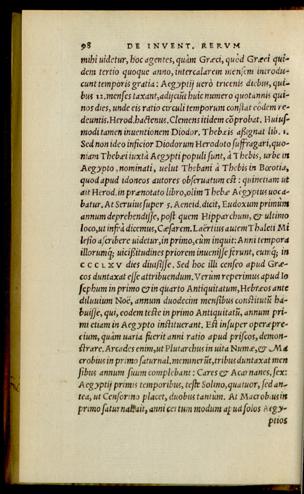 98 DE INVENT. RERVM
mihi uidetur, hoc agentes, quàm Græci, quòd Græci qui-
dem tertio quoque anno, intercalarem mensem introdu-
cunt temporis gratia: Aegyptij uerò tricenis diebus, qui-
bus 12. menses taxant, adijciũt huic numero quotannis qui-
nos dies, unde eis ratio circuli temporum constat eòdem re-
deuntis. Herod. hactenus. Clemens itidem cõprobat. Huius-
modi tamen inuentionem Diodor. Thebæis aßignat lib. 1.
Sed non ideo inficior Diodorum Herodoto suffragari, quo-
niam Thebæi iuxtà Aegypti populi sunt, à Thebis, urbe in
Aegypto, nominati, uelut Thebani à Thebis in Bœotia,
quod apud idoneos autores obseruatum est: quinetiam ut
ait Herod. in prænotato libro, olim Thebæ Aegyptus uoca-
batur. At Seruius super 5. Aeneid. dicit, Eudoxum primùm
annum deprehendisse, post quem Hipparchum, & ultimo
loco, ut infrà dicemus, Cæsarem. Laërtius autem Thaleti Mi
lesio ascribere uidetur, in primo, cùm inquit: Anni tempora
illorumq; uicißitudines priorem inuenisse ferunt, eumq; in
CCCLXV dies diuisisse. Sed hoc illi censeo apud Græ-
cos duntaxat esse attribuendum. Verùm reperimus apud Io
sephum in primo & in quarto Antiquitatum, Hebræos ante
diluuium Noë, annum duodecim mensibus constitutũ ha-
buisse, qui, eodem teste in primo Antiquitatũ, annum pri-
mi etiam in Aegypto instituerant. Est insuper operæpre-
cium, quàm uaria fuerit anni ratio apud priscos, demon-
strare. Arcades enim, ut Plutarchus in uita Numæ, & Ma
crobius in primo saturnal. meminerũt, tribus duntaxat men
sibus annum suum complebant: Cares & Acarnanes, sex:
Aegyptij primis temporibus, teste Solino, quatuor, sed an-
tea, ut Censorino placet, duobus tantum. At Macrobius in
primo saturnal. ait, anni certum modum apud solos Aegy-
ptios